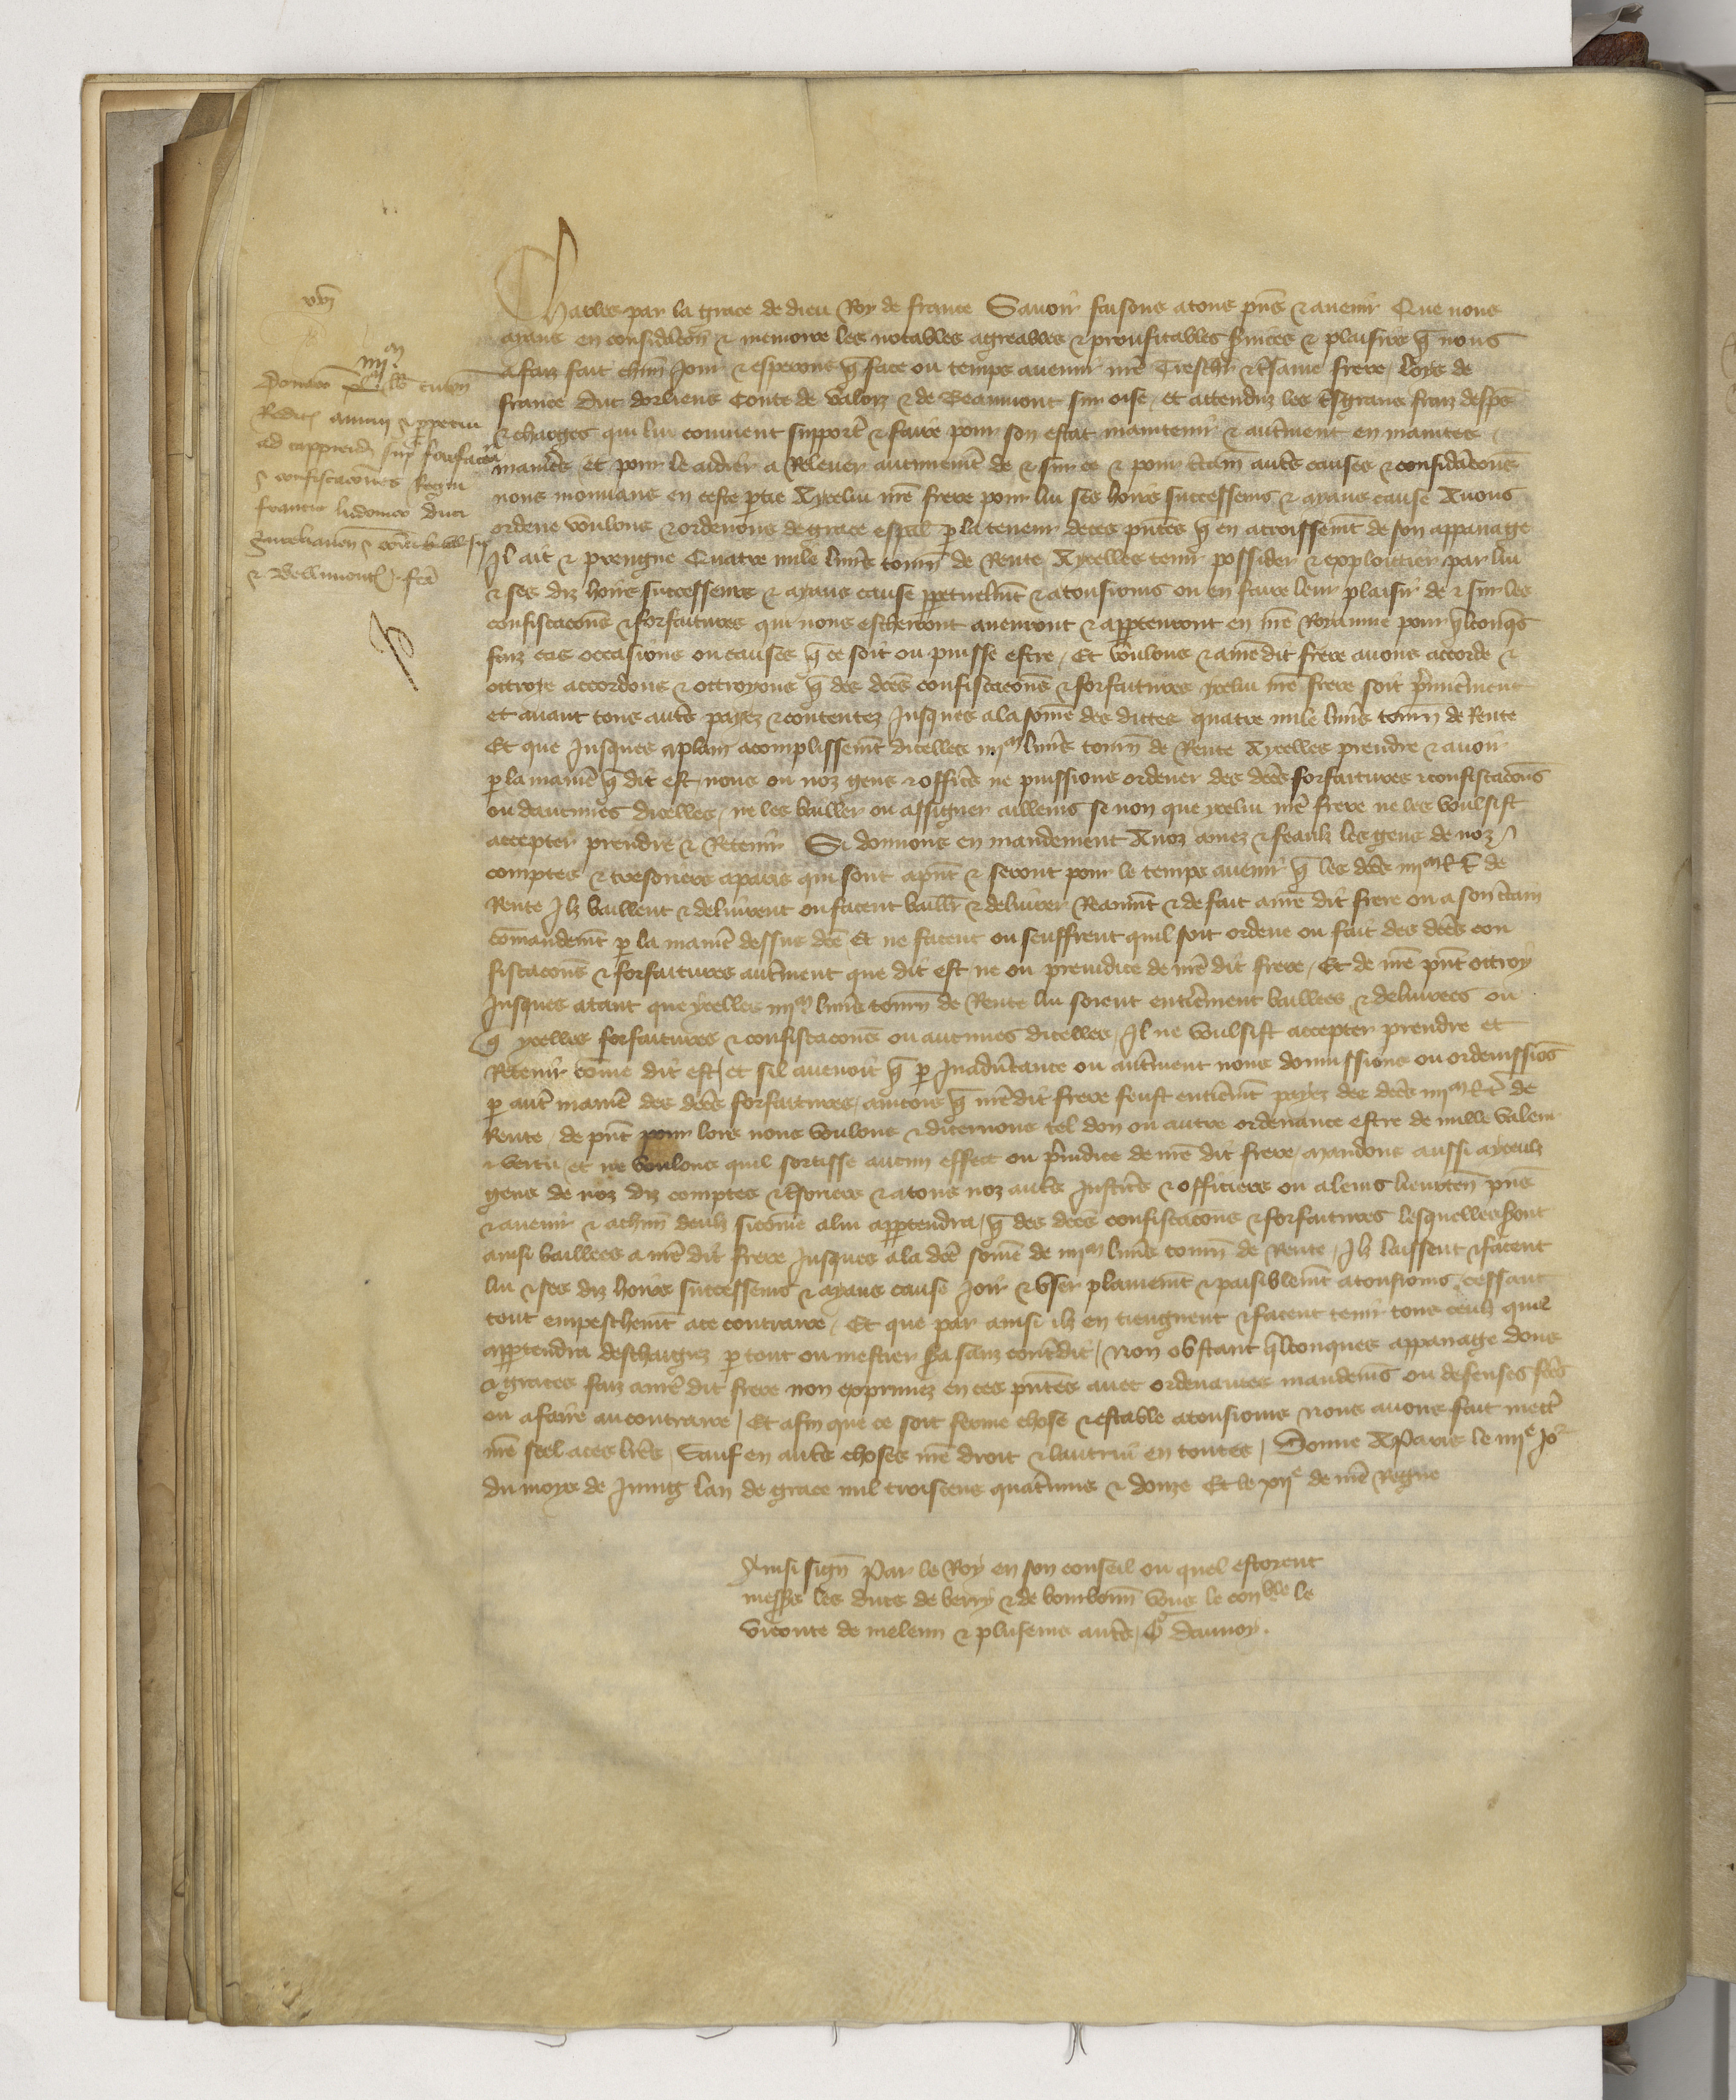 xvj
Donacio iiijᵐ lb turon
Reddit annui et perpetui
ad capiend sup forefacturis
et confiscacoēs Regni
francie ludovico duci
Aurelianen et comiti valesii
et Bellimont fri
Charles par la grace de dieu Roy de france Savoir faisons a tous pn̄s & avenir Que nous
ayans en considacōn & memoire les notables agreables & prouffitables s̄vices & plaisirs q̄ nous
a faiz fait chūn Jour & esperons q̄ face ou temps avenir nr̄e Treschr̄ & tsame frere Loys de
france Duc dorliens Conte de Valoiz & de Beaumont sur oise, et attenduz les tsgrans fraiz desp̄s
& charges qui lui convient support̄ & faire pour son estat maintenir & autr̄ment en maintes
manier̄s et pour le aidier a Relever aucunemt̄ de & sur ce & pour ct̄ain autr̄s causes & considacōns
nous mouvans en ceste p̄tie A ycelui nr̄e frere pour lui ses hoirs successeurs & ayans cause Avons
ordene voulons & ordenons de grace esp̄al p̄ la teneur de ces pn̄tes q̄ en acroissemt̄ de son appanage
Il ait & prengne Quatre mile livr̄s tourn̄ de Rente A ycelles tenir possider & exploictier par lui
& ses diz hoirs successeurs & ayans cause p̄petuelmt̄ & a tousjours ou en faire leur plaisir de & sur les
confiscacōns & forfaitures qui nous escherront avenront & app̄tenront en nr̄e Royaume pour q̄lconq̄s
faiz cas occasions ou causes q̄ ce soit ou puisse estre, Et voulons & a nr̄e dit frere avons accorde &
ottroye accordons & ottroyons q̄ des dc̄es confiscacōns & forfaitures ycelui nr̄e frere soit p̄mier̄ment
et avant tous autr̄s payez & contentez Jusques a la som̄e des dictes quatre mile livr̄s tourn̄ de Rente
Et que Jusques a plain acomplissemt̄ dicelles iiijᵐ livr̄s tourn̄ de Rente A ycelles prendre & avoir
p̄ la manier̄ q̄ dit est, nous ou noz gens & offic̄rs ne puissions ordener des dc̄es forfaitures & confiscacōns
ou daucunes dicelles, ne les bailler ou assigner ailleurs se non que ycelui nr̄e frere ne les voulsist
accepter prendre & Retenir Si donnons en mandement A noz amez & feaulx les gens de noz
comptes & tresoriers a paris qui sont a pn̄t & seront pour le temps avenir q̄ les dc̄es iiijᵐ l t̄ de
Rente Ilz baillent & delivrent ou facent baill̄r & delivrer Reaumt̄ & de fait a nr̄e dit frere ou a son ct̄ain
com̄andemt̄ p̄ la manier̄ dessus dc̄e Et ne facent ou seuffrent quil soit ordene ou fait des dc̄es con
fiscacōns & forfaitures autr̄ment que dit est ne ou preiudice de nr̄e dit frere, Et de nr̄e pn̄t ottroy
Jusques a tant que ycelles iiijᵐ livr̄s tourn̄ de Rente lui soient entier̄ment baillees & delivrees ou
q̄ ycelles forfaitures & confiscacōns ou aucunes dicelles, Il ne voulsist accepter prendre et
Retenir com̄e dit est, et sil avenoit q̄ p̄ Inadv̄tance ou autr̄ment nous donnissions ou ordenissiōs
p̄ autr̄ manier̄ des dc̄es forfaitures, aincois q̄ nr̄e dit frere feust entier̄mt̄ payez des dc̄es iiijᵐ l t̄ de
Rente, de pn̄t pour lors nous voulons & dicernons tel don ou autre ordenance estre de nulle valeur
& vertu, et ne voulons quil sortisse aucun effect ou p̄iudice de nr̄e dit frere, mandons aussi a yceulx
gens de noz diz comptes & tsoriers & a tous noz autr̄s Justic̄rs & officiers ou a leurs lieuxten̄ pn̄s
& avenir & a chūn deulx si com̄e a lui app̄tendra, q̄ des dc̄es confiscacōns & forfaitures lesquelles seront
ainsi baillees a nr̄e dit frere Jusques a la dc̄e som̄e de iiijᵐ livr̄s tourn̄ de Rente, Ilz laissent & facent
lui & ses diz hoirs successeurs & ayans cause Joir & user plainemt̄ & paisiblemt̄ a tousjours, cessant
tout empeschemt̄ a ce contraire, Et que par ainsi ilz en tiengnent & facent tenir tous ceulx quil
app̄tendra deschargiez p̄ tout ou mestier sera sanz contr̄dit, Non obstant q̄lconques appanage dons
& graces faiz a nr̄e dit frere non exprimez en ces pn̄tes avec ordenances mandemēs ou defenses fc̄es
ou a faire au contraire, Et afin que ce soit ferme chose & estable a tousjours Nous avons fait mectr̄
nr̄e seel a ces lr̄es, Sauf en autr̄s choses nr̄e droit & lautrui en toutes, Donne A Paris le iiijᵉ Jōr
du moys de Juing lan de grace mil trois cens quatr̄ vins & douze Et le xijᵉ de nr̄e Regne
Ainsi sign̄ Par le Roy en son conseil ou quel estoient
messrs les ducs de berry & de bourbonn̄ vous le con̄ble le
viconte de meleun & pluseurs autr̄s, G Daunoy.